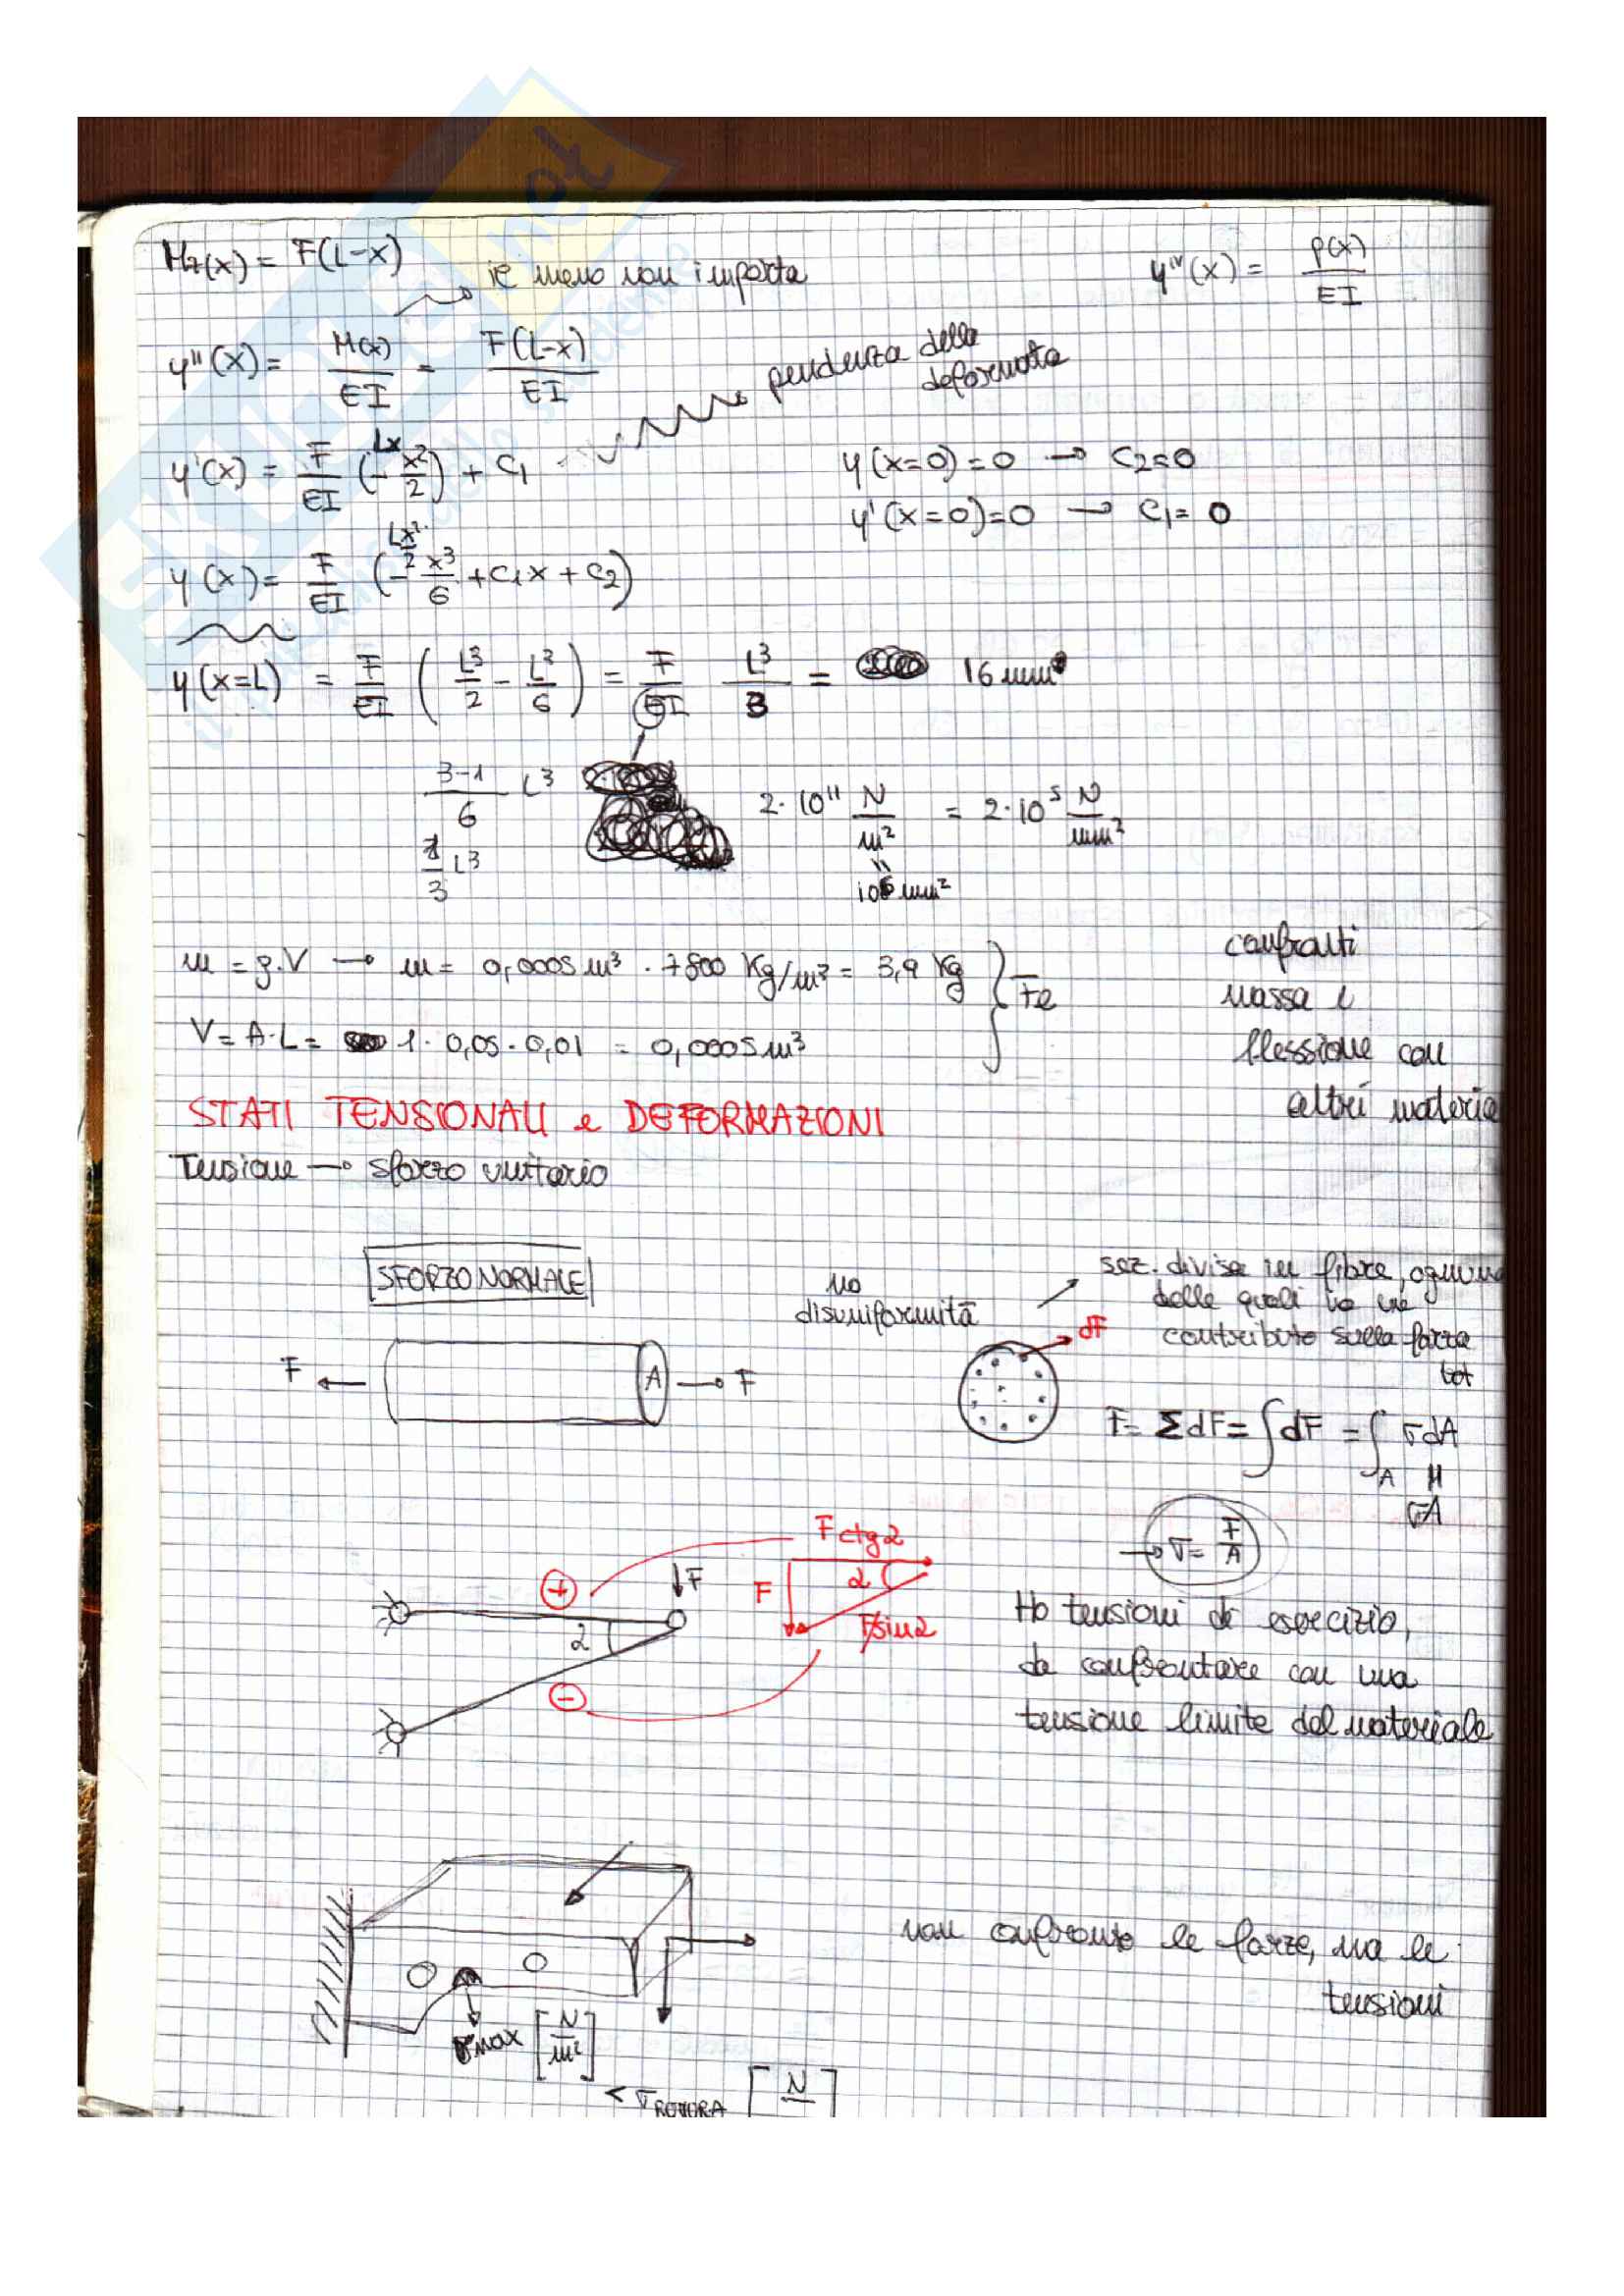 Mz(x) = F(L-x)
il meno non importa
y'''(x) = P(x)/EI
y''(x) = M(x)/EI = F(L-x)/EI
pendenza della
deformata
y'(x) = F/EI (Lx - x²/2) + C₁
y(x=0)=0 → C₂=0
y'(x=0)=0 → C₁=0
y(x) = F/EI (Lx²/2 - x³/6 + C₁x + C₂)
y(x=L) = F/EI (L³/2 - L³/6) = F/EI L³/3 = 16 mm
3-1/6 L³
2·10¹¹ N/m² = 2·10⁵ N/mm²
1/3 L³
10⁶ mm²
m = ρ·V → m = 0,0005 m³ · 7800 Kg/m³ = 3,9 Kg
Fe
V = A·L = 1·0,05·0,01 = 0,0005 m³
confronti
massa e
flessione con
altri materia
STATI TENSIONALI e DEFORMAZIONI
Tensione → sforzo unitario
SFORZO NORMALE
no
disuniformità
sez. divisa in fibre, ognuna
delle quali ha un
contributo sulla forza
tot
dF
F
A
F
F = Σ dF = ∫dF = ∫A σdA
σA
→ σ = F/A
F ctg α
F
α
F/sin α
+
F
α
-
Ho tensioni di esercizio,
da confrontare con una
tensione limite del materiale
non confronto le forze, ma le
tensioni
σMAX [N/m²]
< σROTTURA [N